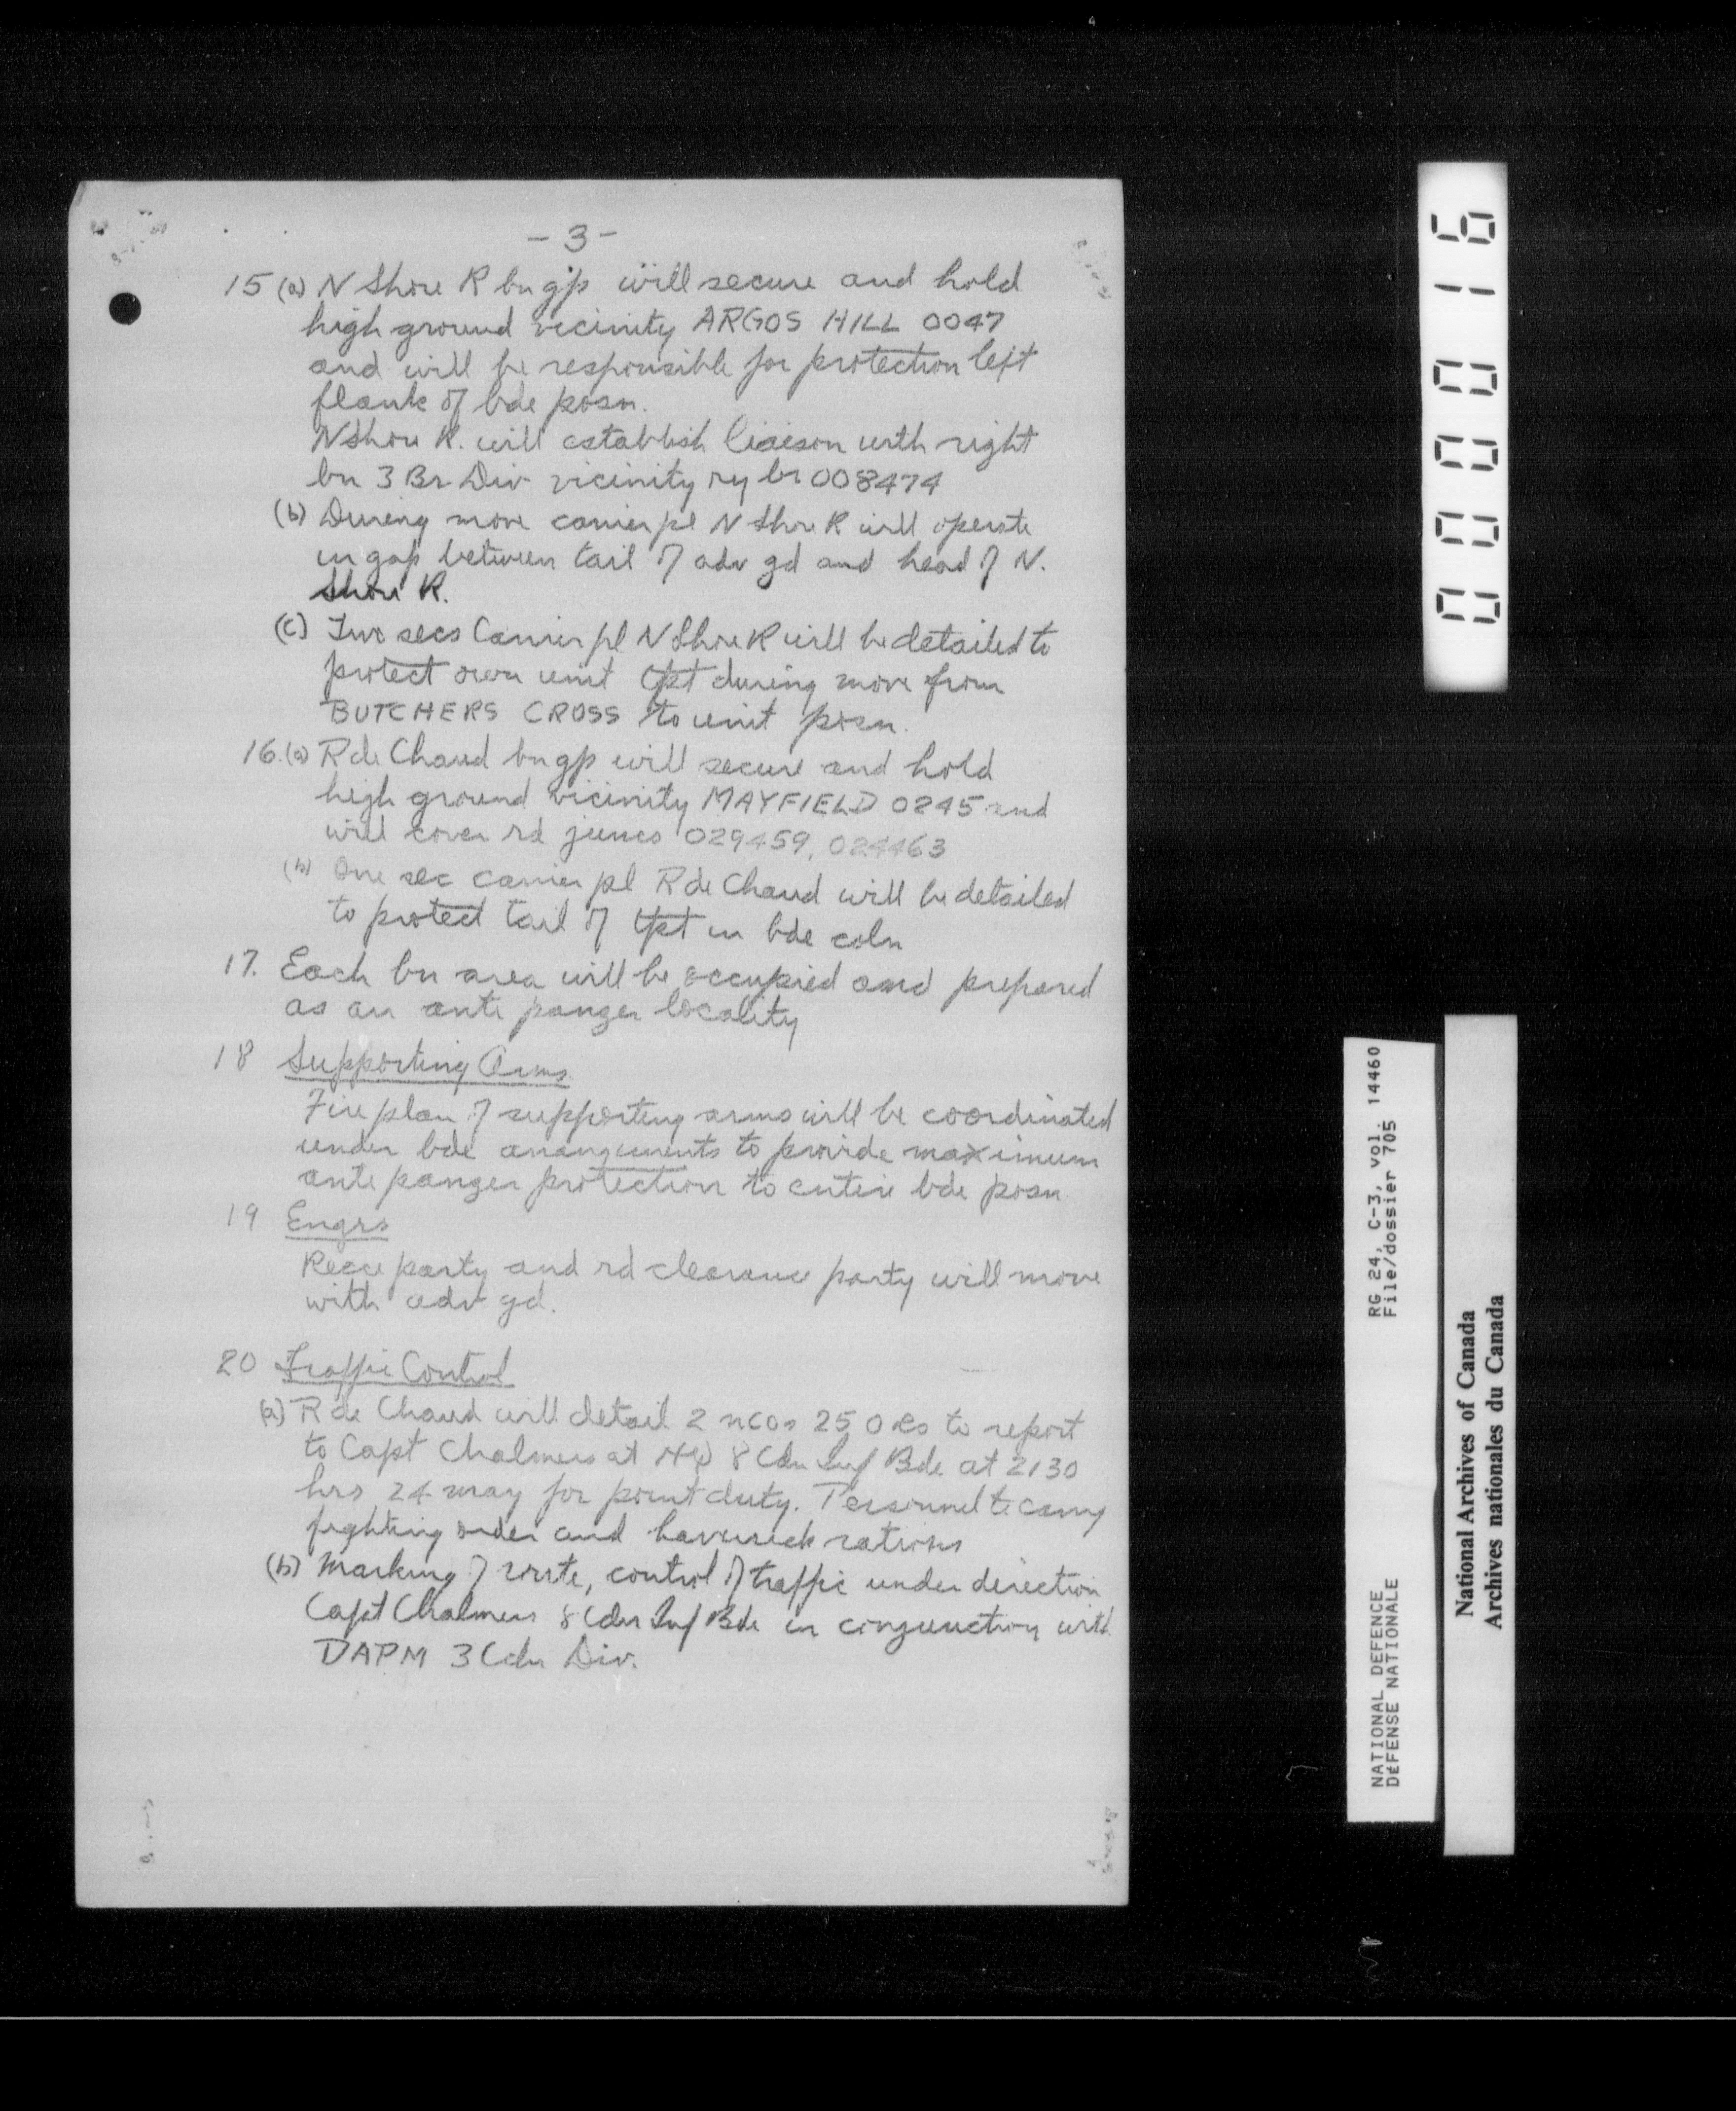 - 3 -
15 (a) N Shore R bn gp will secure and hold
high ground vicinity ARGOS HILL 0047
and will be responsible for protection left
flank of bde posn.
N Shore R. will establish liaison with right
bn 3 Br Div vicinity ry br 008474
(b) During move carrier pl N Shore R will operate
in gap between tail of adv gd and head of N.
Shore R.
(c) Two secs Carrier pl N Shore R will be detailed to
protect own unit tpt during move from
BUTCHERS CROSS to unit posn.
16. (a) R de Chaud bn gp will secure and hold
high ground vicinity MAYFIELD 0245 and
will cover rd juncs 029459, 024463
(b) One sec carrier pl R de Chaud will be detailed
to protect tail of tpt in bde coln
17. Each bn area will be occupied and prepared
as an anti panzer locality
18 Supporting Arms
Fire plan of supporting arms will be coordinated
under bde arrangements to provide maximum
anti panzer protection to entire bde posn
19 Engrs
Recce party and rd clearance party will move
with adv gd.
20 Traffic Control
(a) R de Chaud will detail 2 ncos 25 ORs to report
to Capt Chalmers at HQ 8 Cdn Inf Bde at 2130
hrs 24 may for point duty. Personnel to carry
fighting order and haversack rations
(b) Marking of route, control of traffic under direction
Capt Chalmers 8 Cdn Inf Bde in conjunction with
DAPM 3 Cdn Div.
000016
RG 24, C-3, vol. 14460
File/dossier 705
NATIONAL DEFENCE
DÉFENSE NATIONALE
National Archives of Canada
Archives nationales du Canada